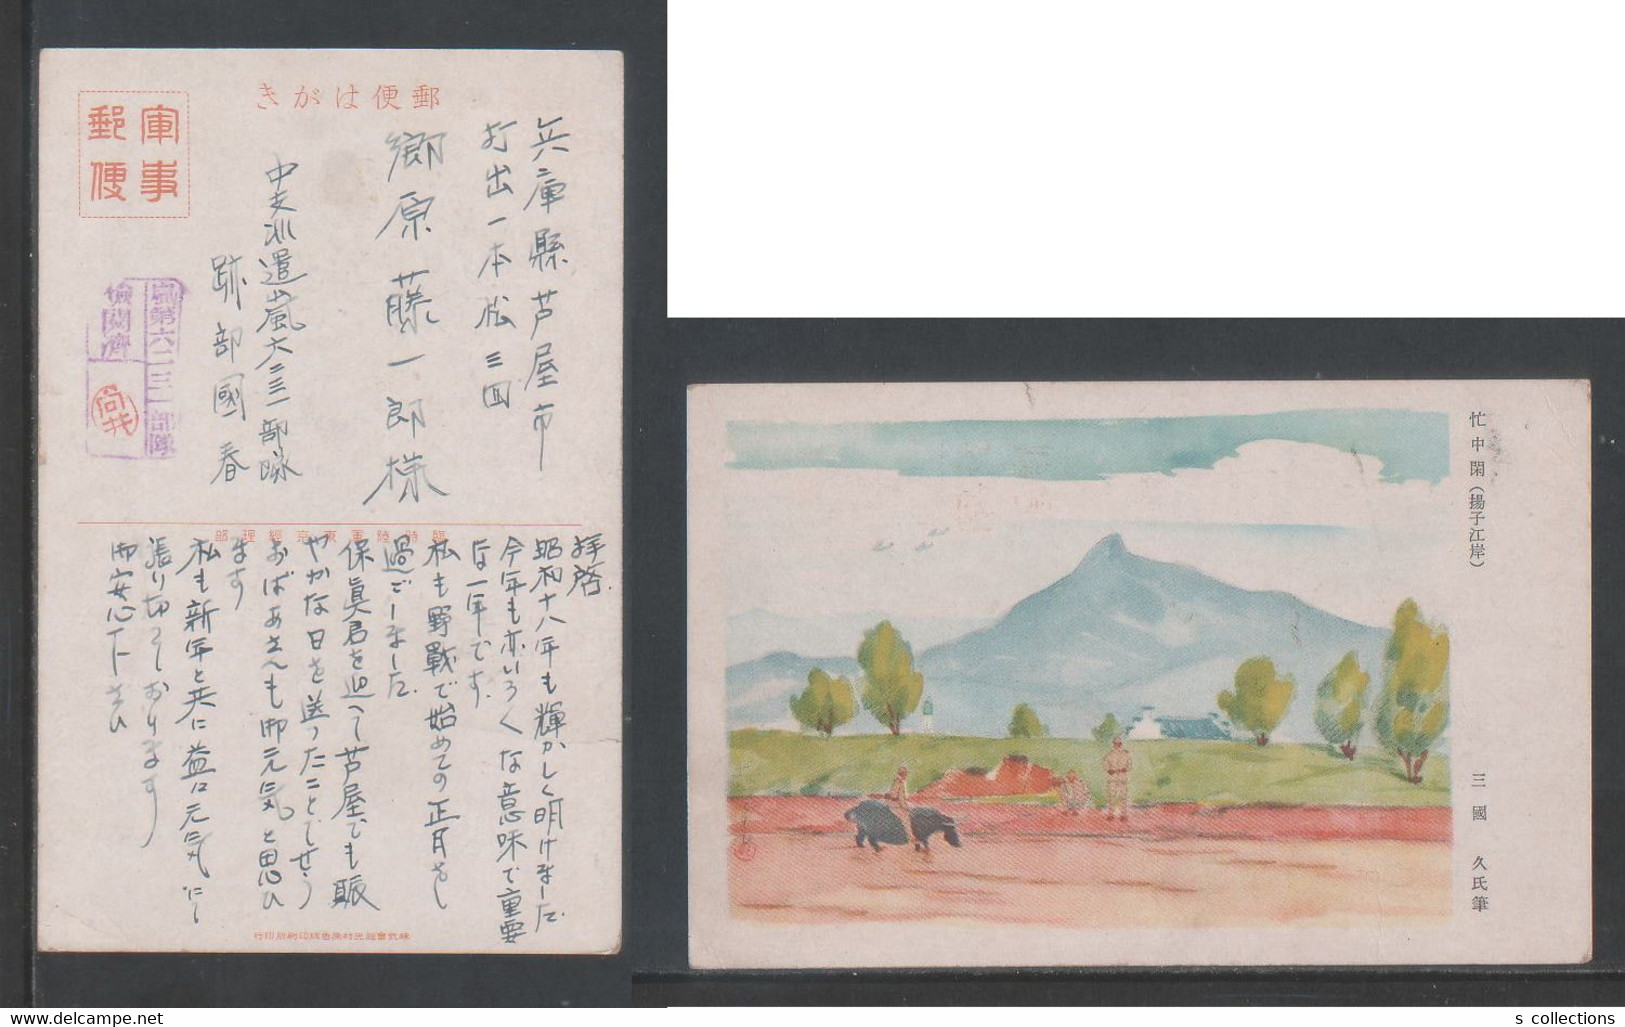 郵便はがき
軍事
郵便
兵庫縣芦屋市
打出一本松三四
郷原藤一郎様
中支派遣嵐六二三一部隊
跡部國春
嵐第六二三一部隊
検閲濟
臨時陸軍東京經理部
拝啓
昭和十八年も輝かしく明けました
今年も亦いろくな意味で重要
な一年です
私も野戦で始めての正月をし
過ごしました
保眞君を迎へて芦屋でも賑
やかな日を送ったことでせう
おばあさんも御元気と思ひ
ます
私も新年と共に益に元気にし
張り切っております
御安心下さい
忙中閑（揚子江岸）
三國 久氏筆
s collections